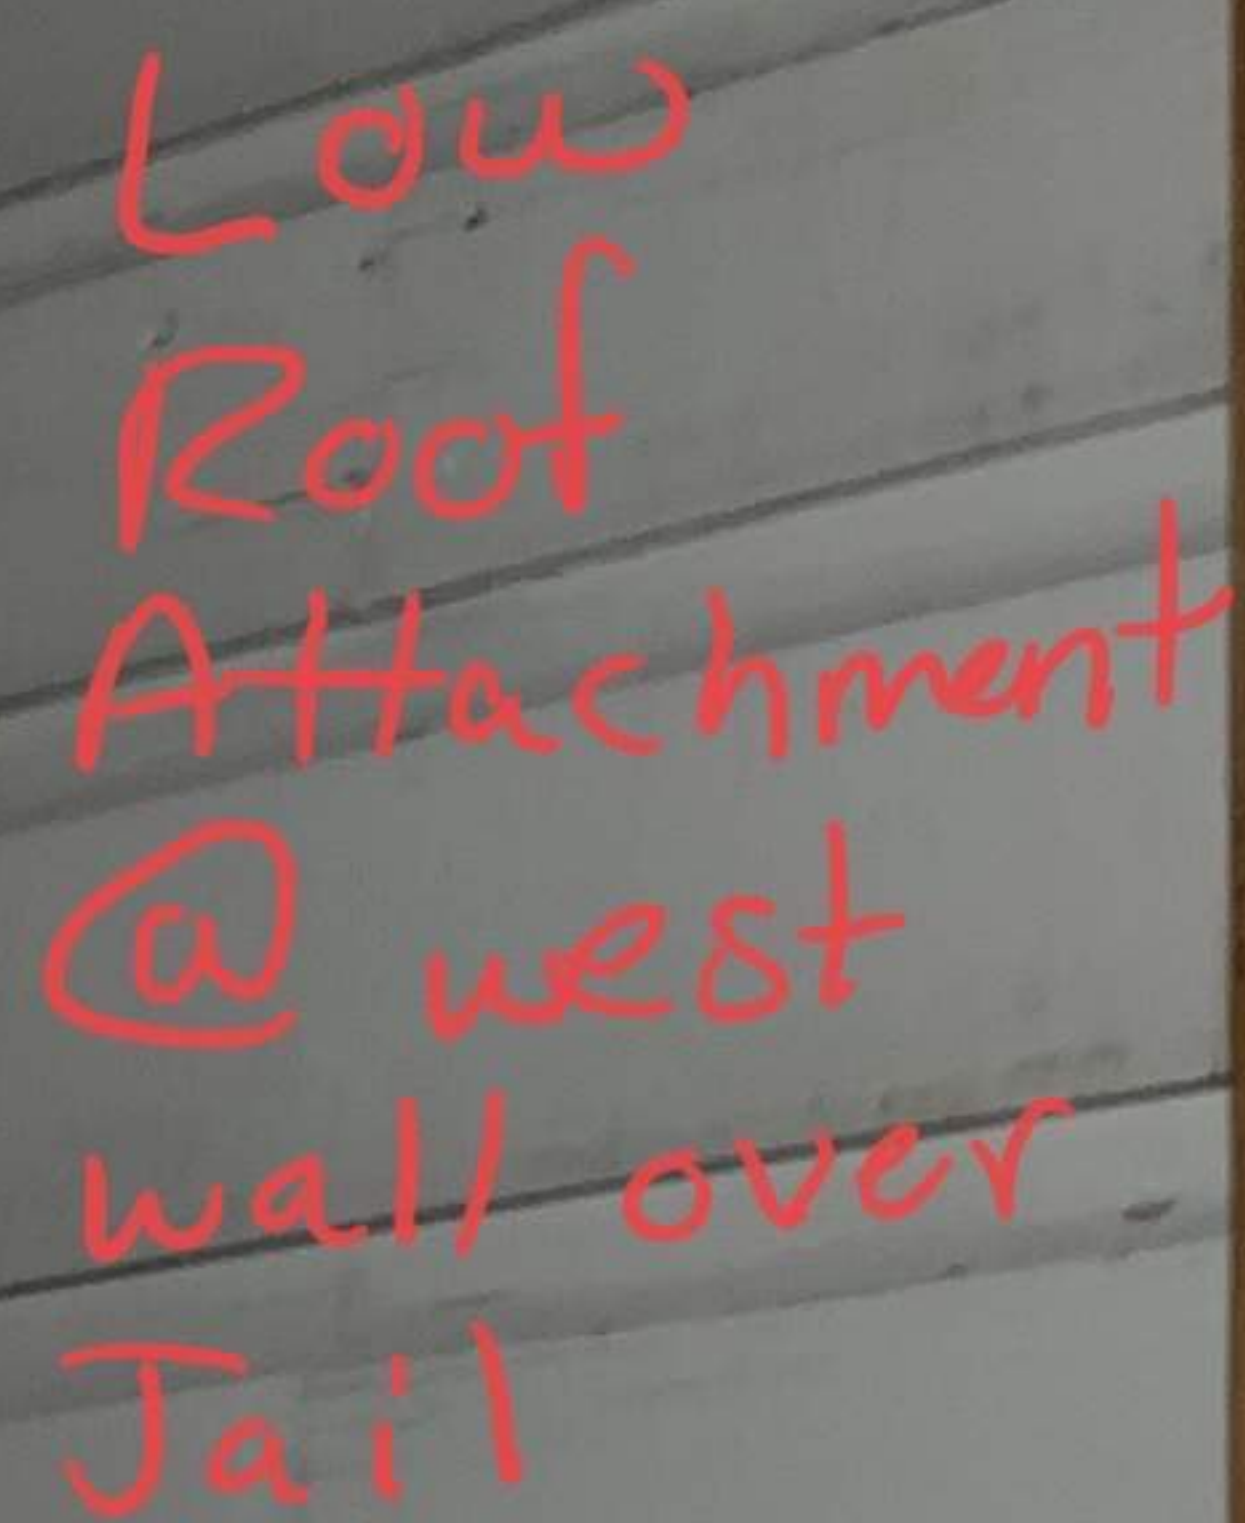 Low
Roof
Attachment
@ west
wall over
Jail